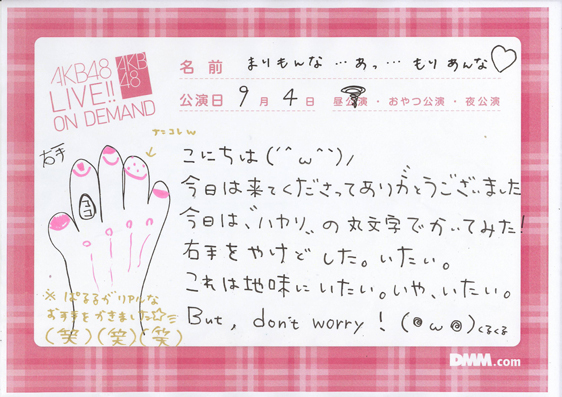 AKB48
LIVE!!
ON DEMAND
AKB
48
名前 まりもんな…あっ…もりあんな♡
公演日 9月4日 昼公演・おやつ公演・夜公演
右手
ナニコレw
ココ
こにちは(´^ω^`)ノ
今日は来てくださってありがとうございました
今日は、"ハカリ"の丸文字でかいてみた!
右手をやけどした。いたい。
これは地味にいたい。いや、いたい。
But, don't worry! (@ω@)くるくる
※ぱるるがリアルな
お手手をかきました☆彡
(笑)(笑)(笑)
DMM.com